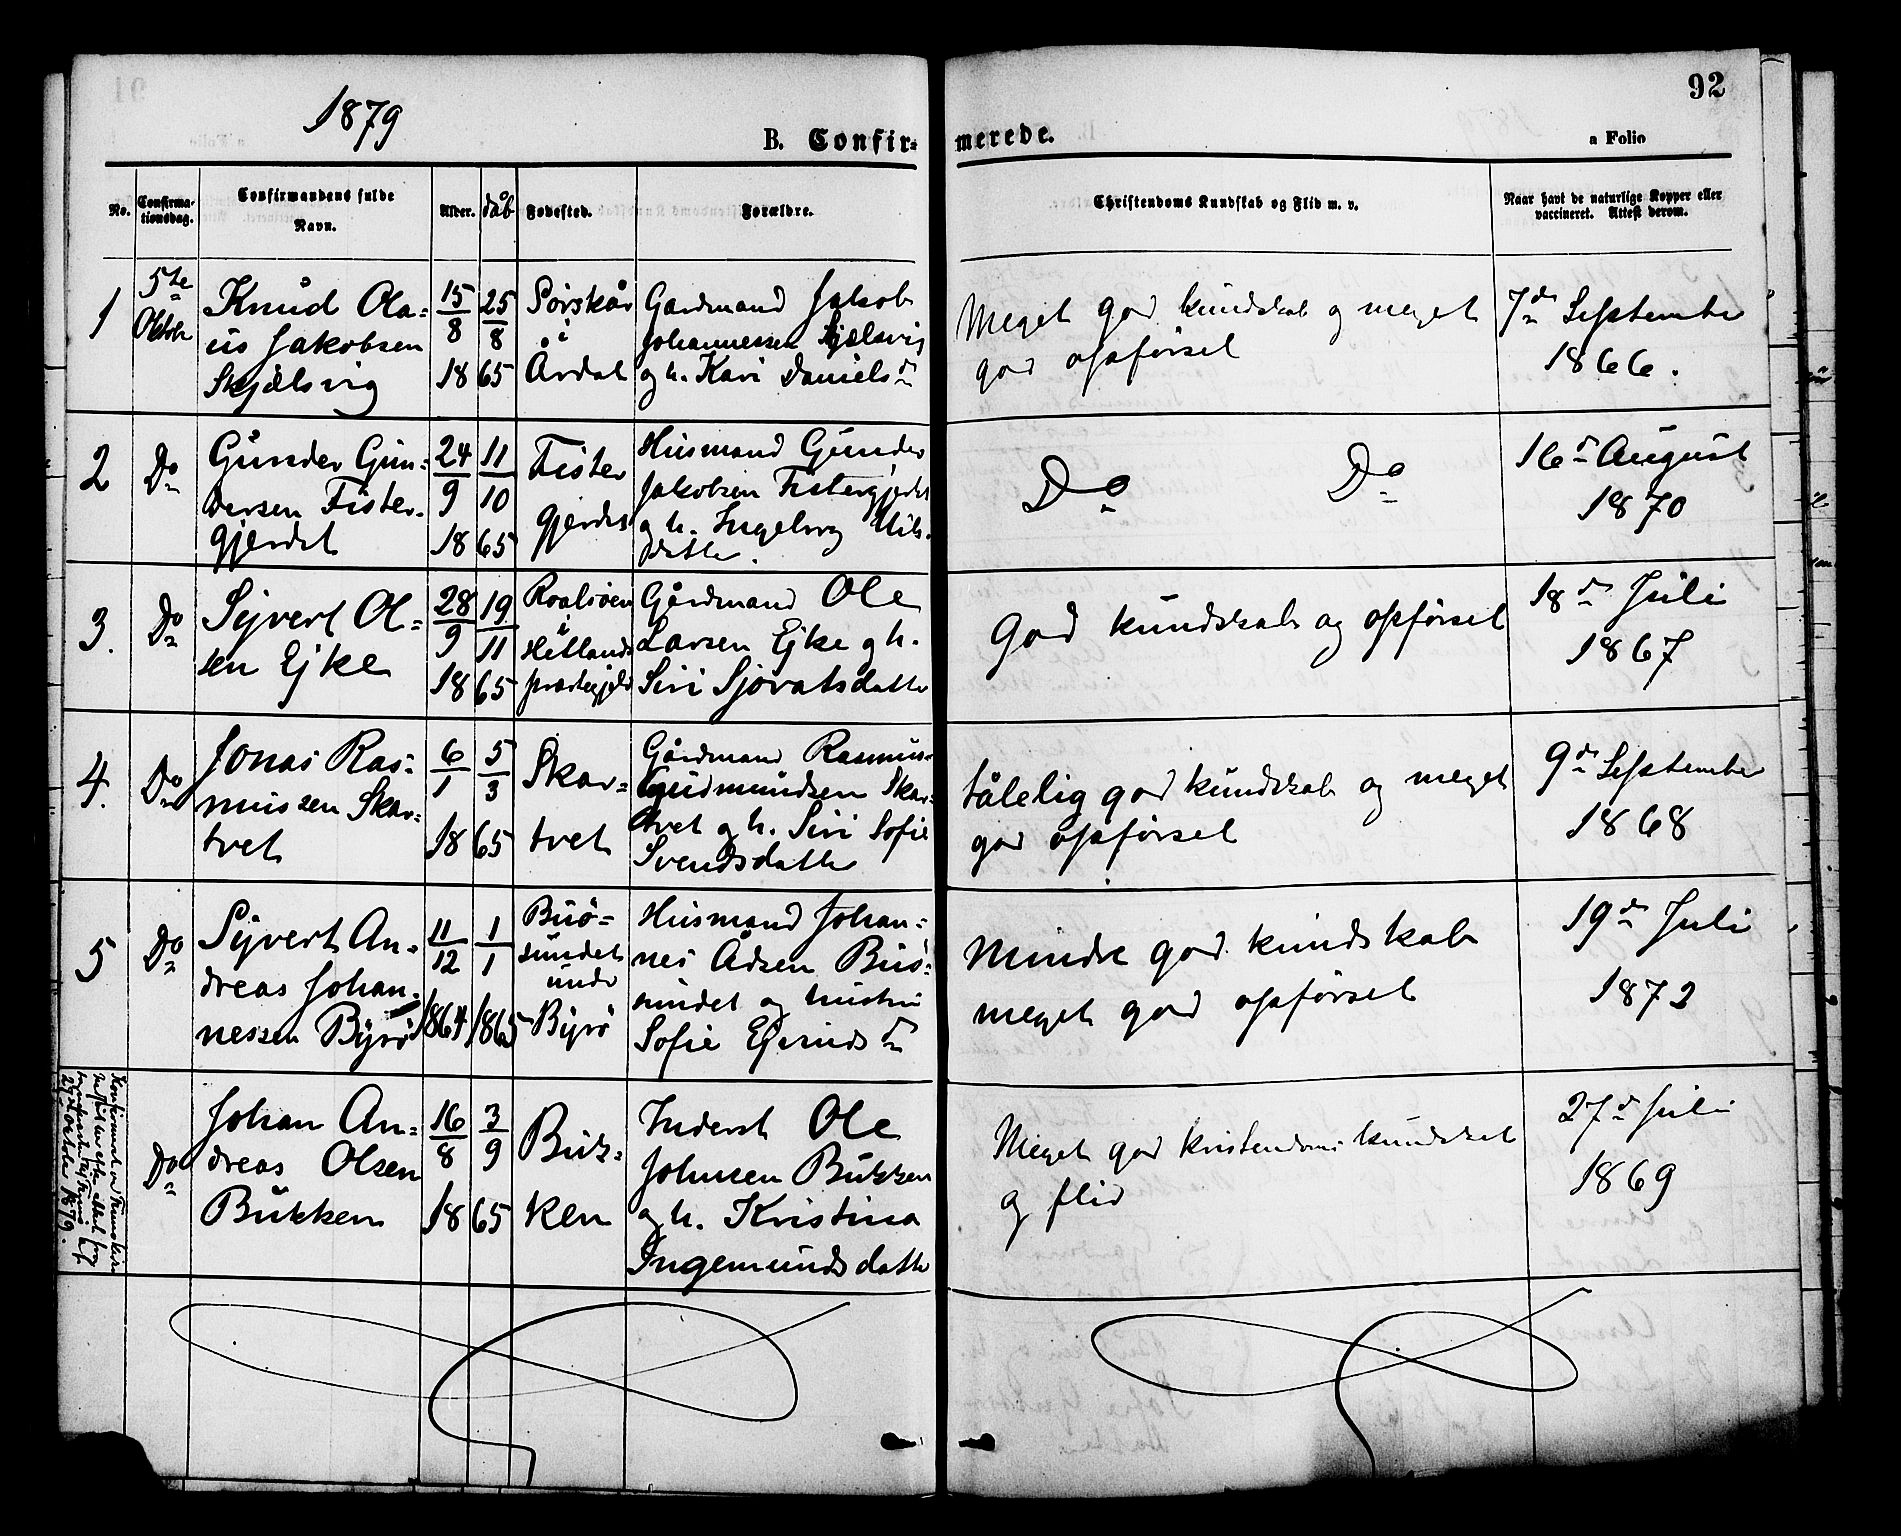 1879
92
B. Confir-
merede.
a Folio
No.
Confirma-
tionsdag.
Confirmandens fulde
Navn.
Alder.
dåb
Fødested.
Forældre.
Christendoms Kundskab og Flid m. v.
Naar havt de naturlige Kopper eller
vaccineret. Attest derom.
1
5te
Oktobr
Knud Ola-
us Jakobsen
Skjælsvig
15
8
18
25
8
65
Sørskår
i
Årdal
Gardmand Jakob
Johannessen Skjælsvig
og h. Kari Daniels dr
Meget god kundskab og meget
god opførsel
7de September
1866.
2
Do
Gunder Gun-
dersen Fister-
gjerdet
24
9
18
11
10
65
Fister
gjerdet
Husmand Gunder
Jakobsen Fistergjerdet
og h. Ingeborg Nils-
datter.
Do Do
16de August
1870
3.
Do
Sjvert Ol-
sen Ejke
28
9
18
19
11
65
Roalsøen
i
Hetlands
præstegjeld
Gårdmand Ole
Larsen Ejke og h.
Siri Sjovatsdatter
God kundskab og opførsel
18de Juli
1867
4.
Do
Jonas Ras-
mussen Skar-
tvet
6
1
18
5
3
65
Skar-
tvet
Gårdmand Rasmus
Gudmundsen Skar-
tvet og h. Siri Sofie
Svendsdatter
tålelig god kundskab og meget
god opførsel
9de September
1868
5
Do
Sjvert An-
dreas Johan-
nessen Byrø
11
12
1864
1
1
1865
Buø-
sundet
under
Byrø
Husmand Johan-
nes Ådsen Buø-
sundet og hustru
Sofie Ejvinds dr
Mindre god kundskab
meget god opførsel
19de Juli
1872
Oktober 1879.
Do
Johan An-
dreas Olsen
Bukken
16
8
18
3
9
65
Buk-
ken
Inderst Ole
Johnsen Bukken
og h. Kristina
Ingemunds datter
Meget god kristendoms kundskab
og flid
27de Juli
1869